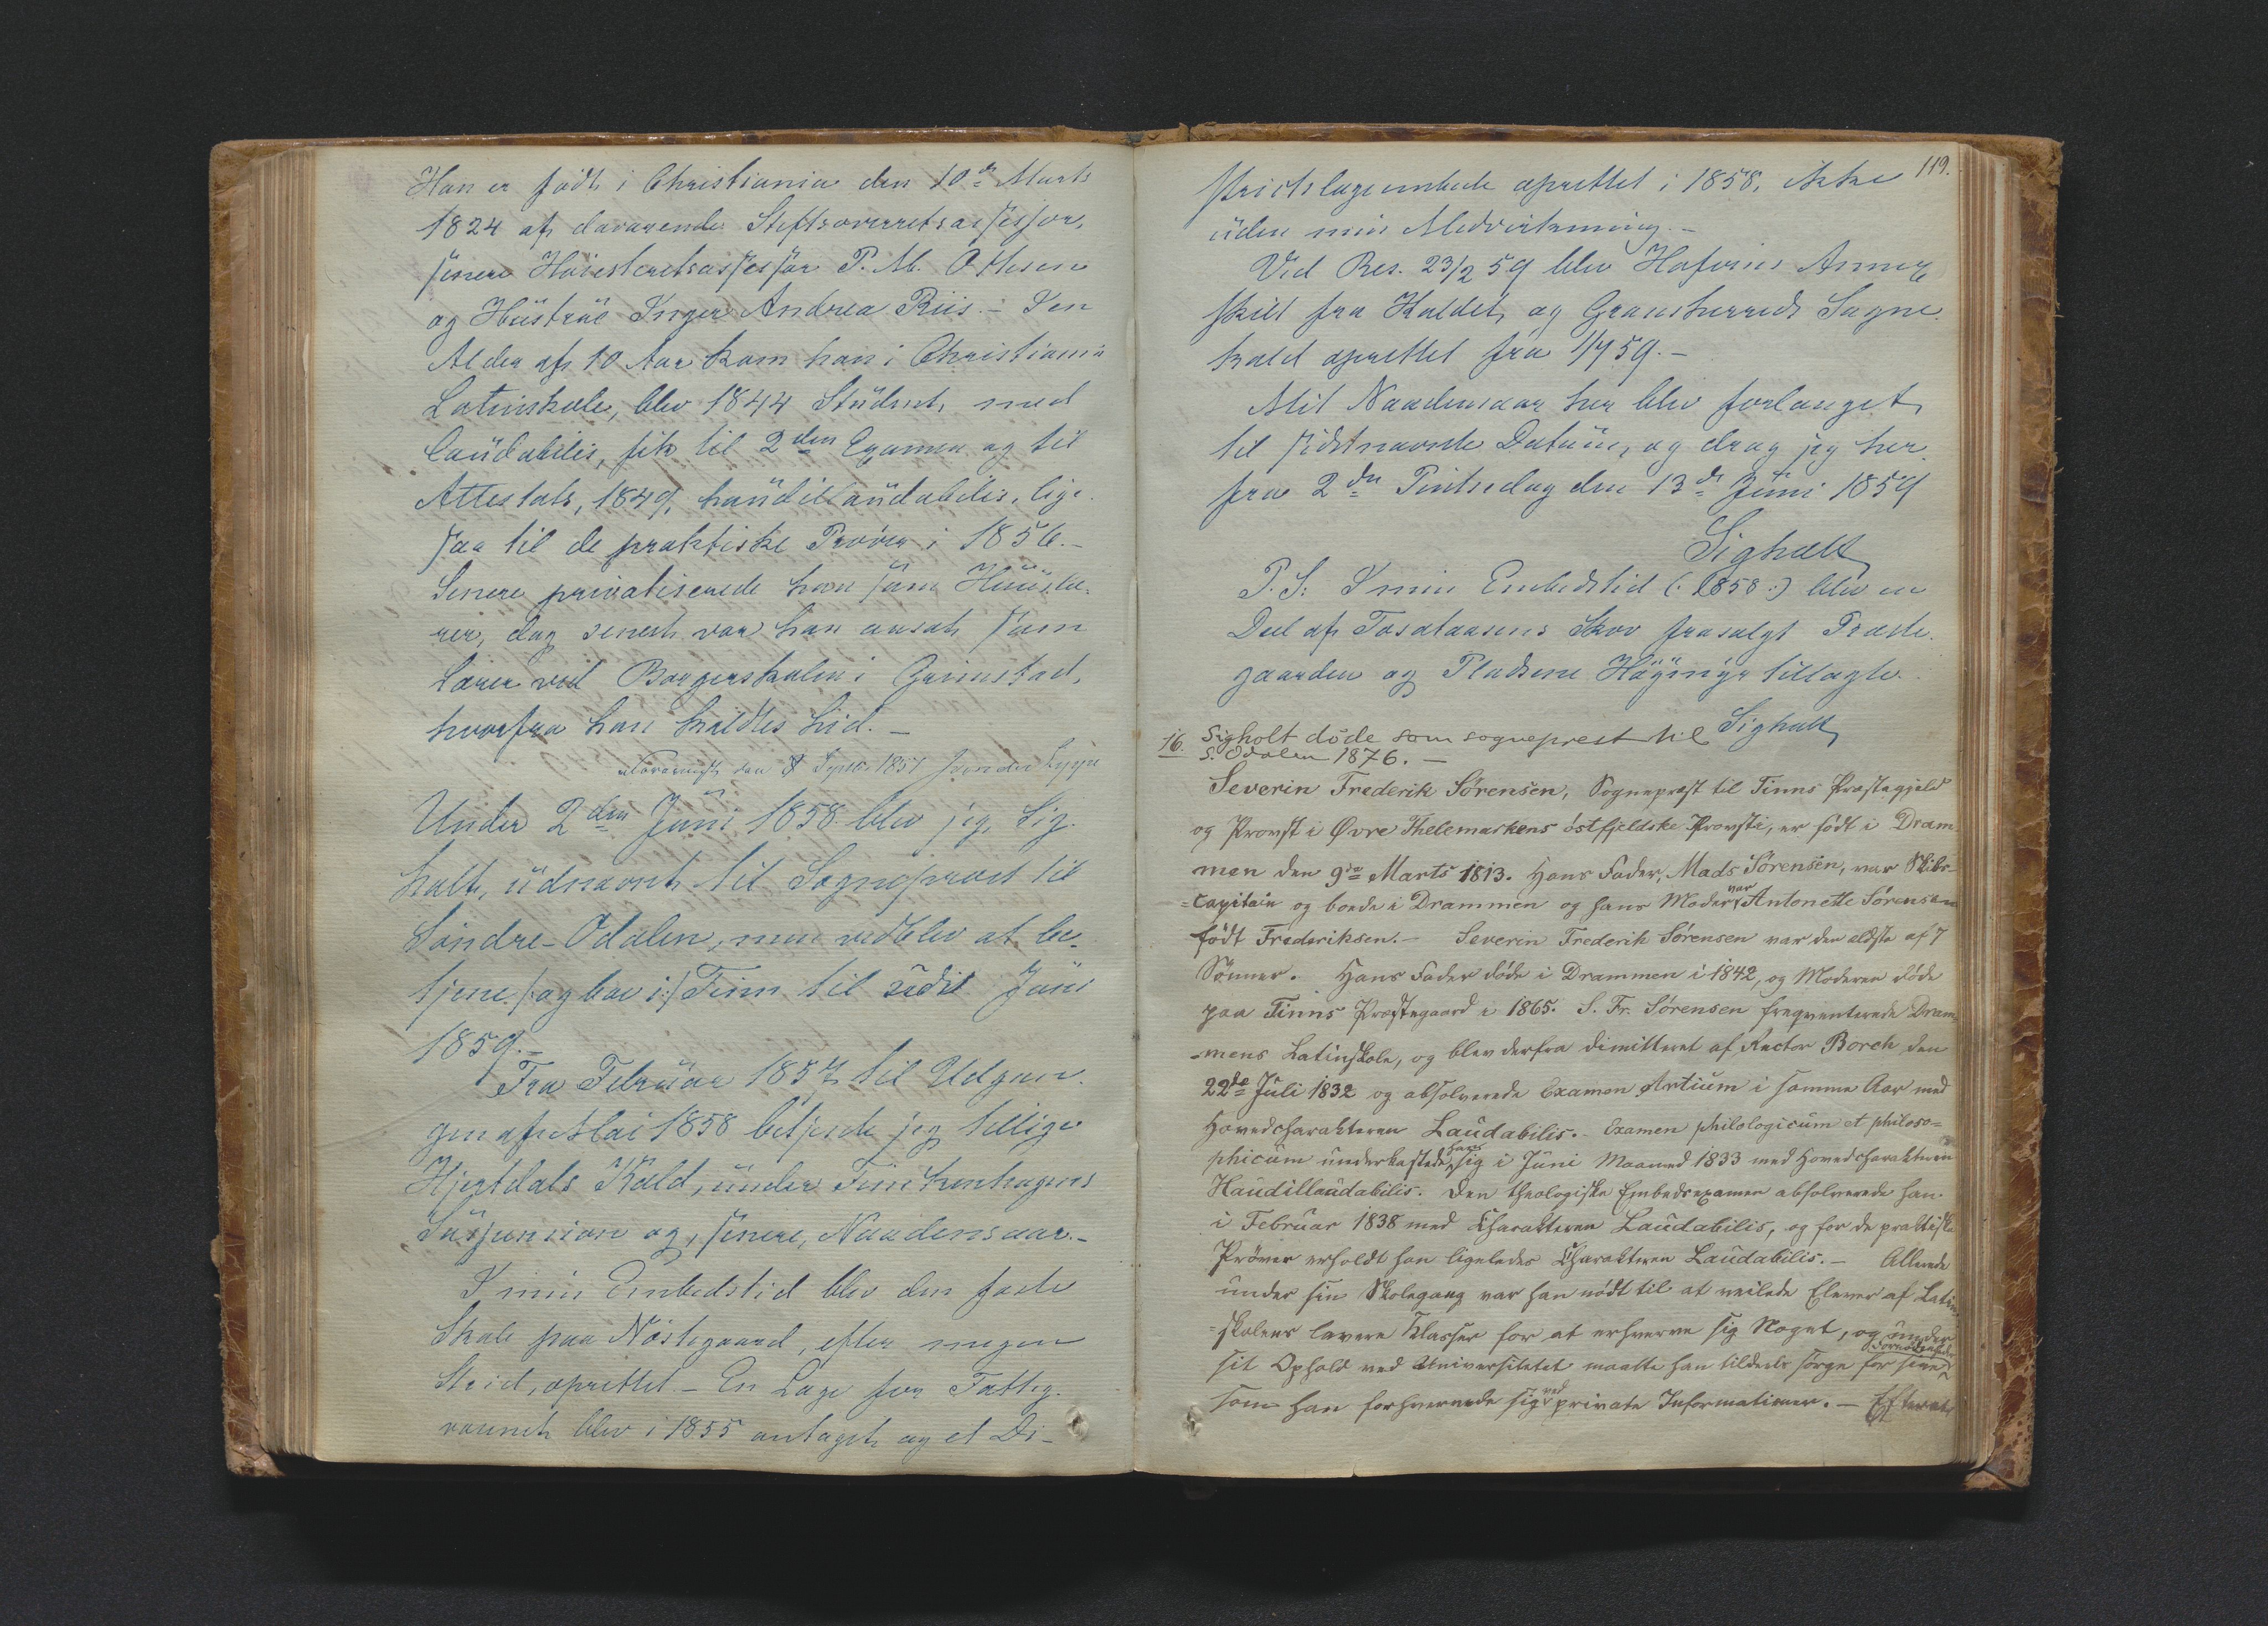 Han er født i Christiania den 10de Marts
1824 af daværende Stiftsoverretsassessor,
senere Høiesteretsassessor P. M. Ottesen
og Hüstrüe Inger Andrea Riis. – I en
Alder af 10 Aar kom han i Christiania
Latinskole, blev 1844 Stüdent med
laüdabilis, fik til 2den Examen og til
Attestats, 1849, haüdillaüdabilis, lige-
saa til de praktiske Prøver i 1856.–
Senere privatiserede han som Hüüslæ-
rer, dog senest var han ansat som
Lærer ved Borgerskolen i Grimstad,
hvorfra han kaldtes hid. –
den 8 Septbr. 1857
Under 2den Jüni 1858 blev jeg, Sig-
holt, üdnævnt til Sognepræst til
Søndre-Odalen, men vedblev at be-
tjene /: og boe i :/ Tinn til midt Jüni
1859.–
Fra Februar 1857 til Udgan-
gen af Mai 1858 betjente jeg tillige
Hjertdals Kald, ünder Finckenhagens
Süspension og, senere, Naadensaar.–
I min Embedstid blev den faste
Skole paa Næstegaard, efter megen
Strid, oprettet.– En Læge for Fattig-
væsenet blev i 1855 antaget og et Di-
119.
strictslægeembede oprettet i 1858, ikke
üden min Medvirkning.–
Ved Res. 23/2 59 blev Hovins Annex
skilt fra Kaldet, og Gransherreds Sogne-
kald oprettet fra 1/7 59.–
Mit Naadensaar her blev forlænget
til sidstnævnte Datüm, og drog jeg her-
fra 2den Pintsedag den 13de Jüni 1859
Sigholt
P.S: I min Embedstid (: 1858 :) blev en
Deel af Skov frasolgt Præste-
gaarden og Pladsene tillagte.
Sigholt
16. Sigholt døde som sogneprest til
S. Odalen 1876. –
Severin Frederik Sørensen, Sognepræst til Tinns Præstegjeld
og Provst i Øvre Thelemarkens østfjeldske Provsti, er født i Dram-
men den 9de Marts 1813. Hans Fader, Mads Sørensen, var Skibs-
=capitain og boede i Drammen og hans Moder var Antonette Sørensen
født Frederiksen.– Severin Frederik Sørensen var den ældste af 7
Sønner. Hans Fader døde i Drammen i 1842, og Moderen døde
paa Tinns Præstegaard i 1865. S. Fr. Sørensen freqventerede Dram-
-mens Latinskole, og blev derfra dimitteret af Rector Borch den
22de Jüli 1832 og absolverede Examen Artium i samme Aar med
Hovedcharakteren Laüdabilis. – Examen philologicüm et philoso=
phicüm ünderkastede han sig i Jüni Maaned 1833 med Hovedcharakteren
Haüdillaüdabilis. Den theologiske Embedsexamen absolverede han
i Februar 1838 med Charakteren Laüdabilis, og for de praktiske
Prøver erholdt han ligeledes Charakteren Laüdabilis. – Allerede
ünder sin Skolegang var han nødt til at veilede Elever af Latin-
=skolens lavere Klasser for at erhverve sig Noget, og ünder
sit Ophold ved Universitetet maatte han tildeels sørge for sine Fornødenheder
som han forhvervede sig ved private Informationer. – Efterat